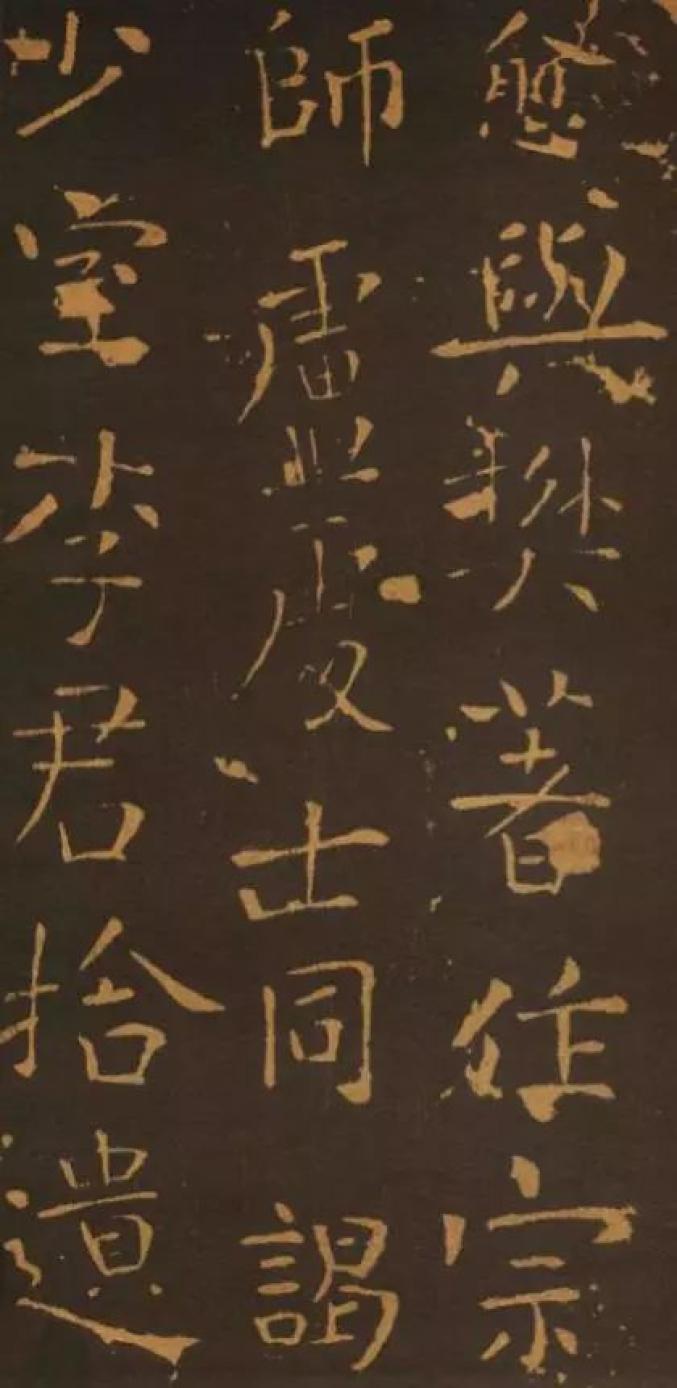 愈與樊著作宗
師盧處士同謁
少室李君拾遺